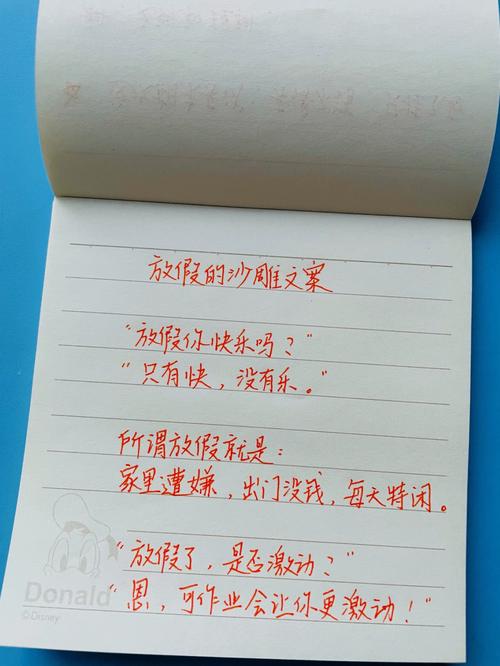 放假的沙雕文案
“放假你快乐吗？”
“只有快，没有乐。”
所谓放假就是：
家里遭嫌，出门没钱，每天特闲。
“放假了，是否激动？”
“恩，可作业会让你更激动！”
Donald
©Disney